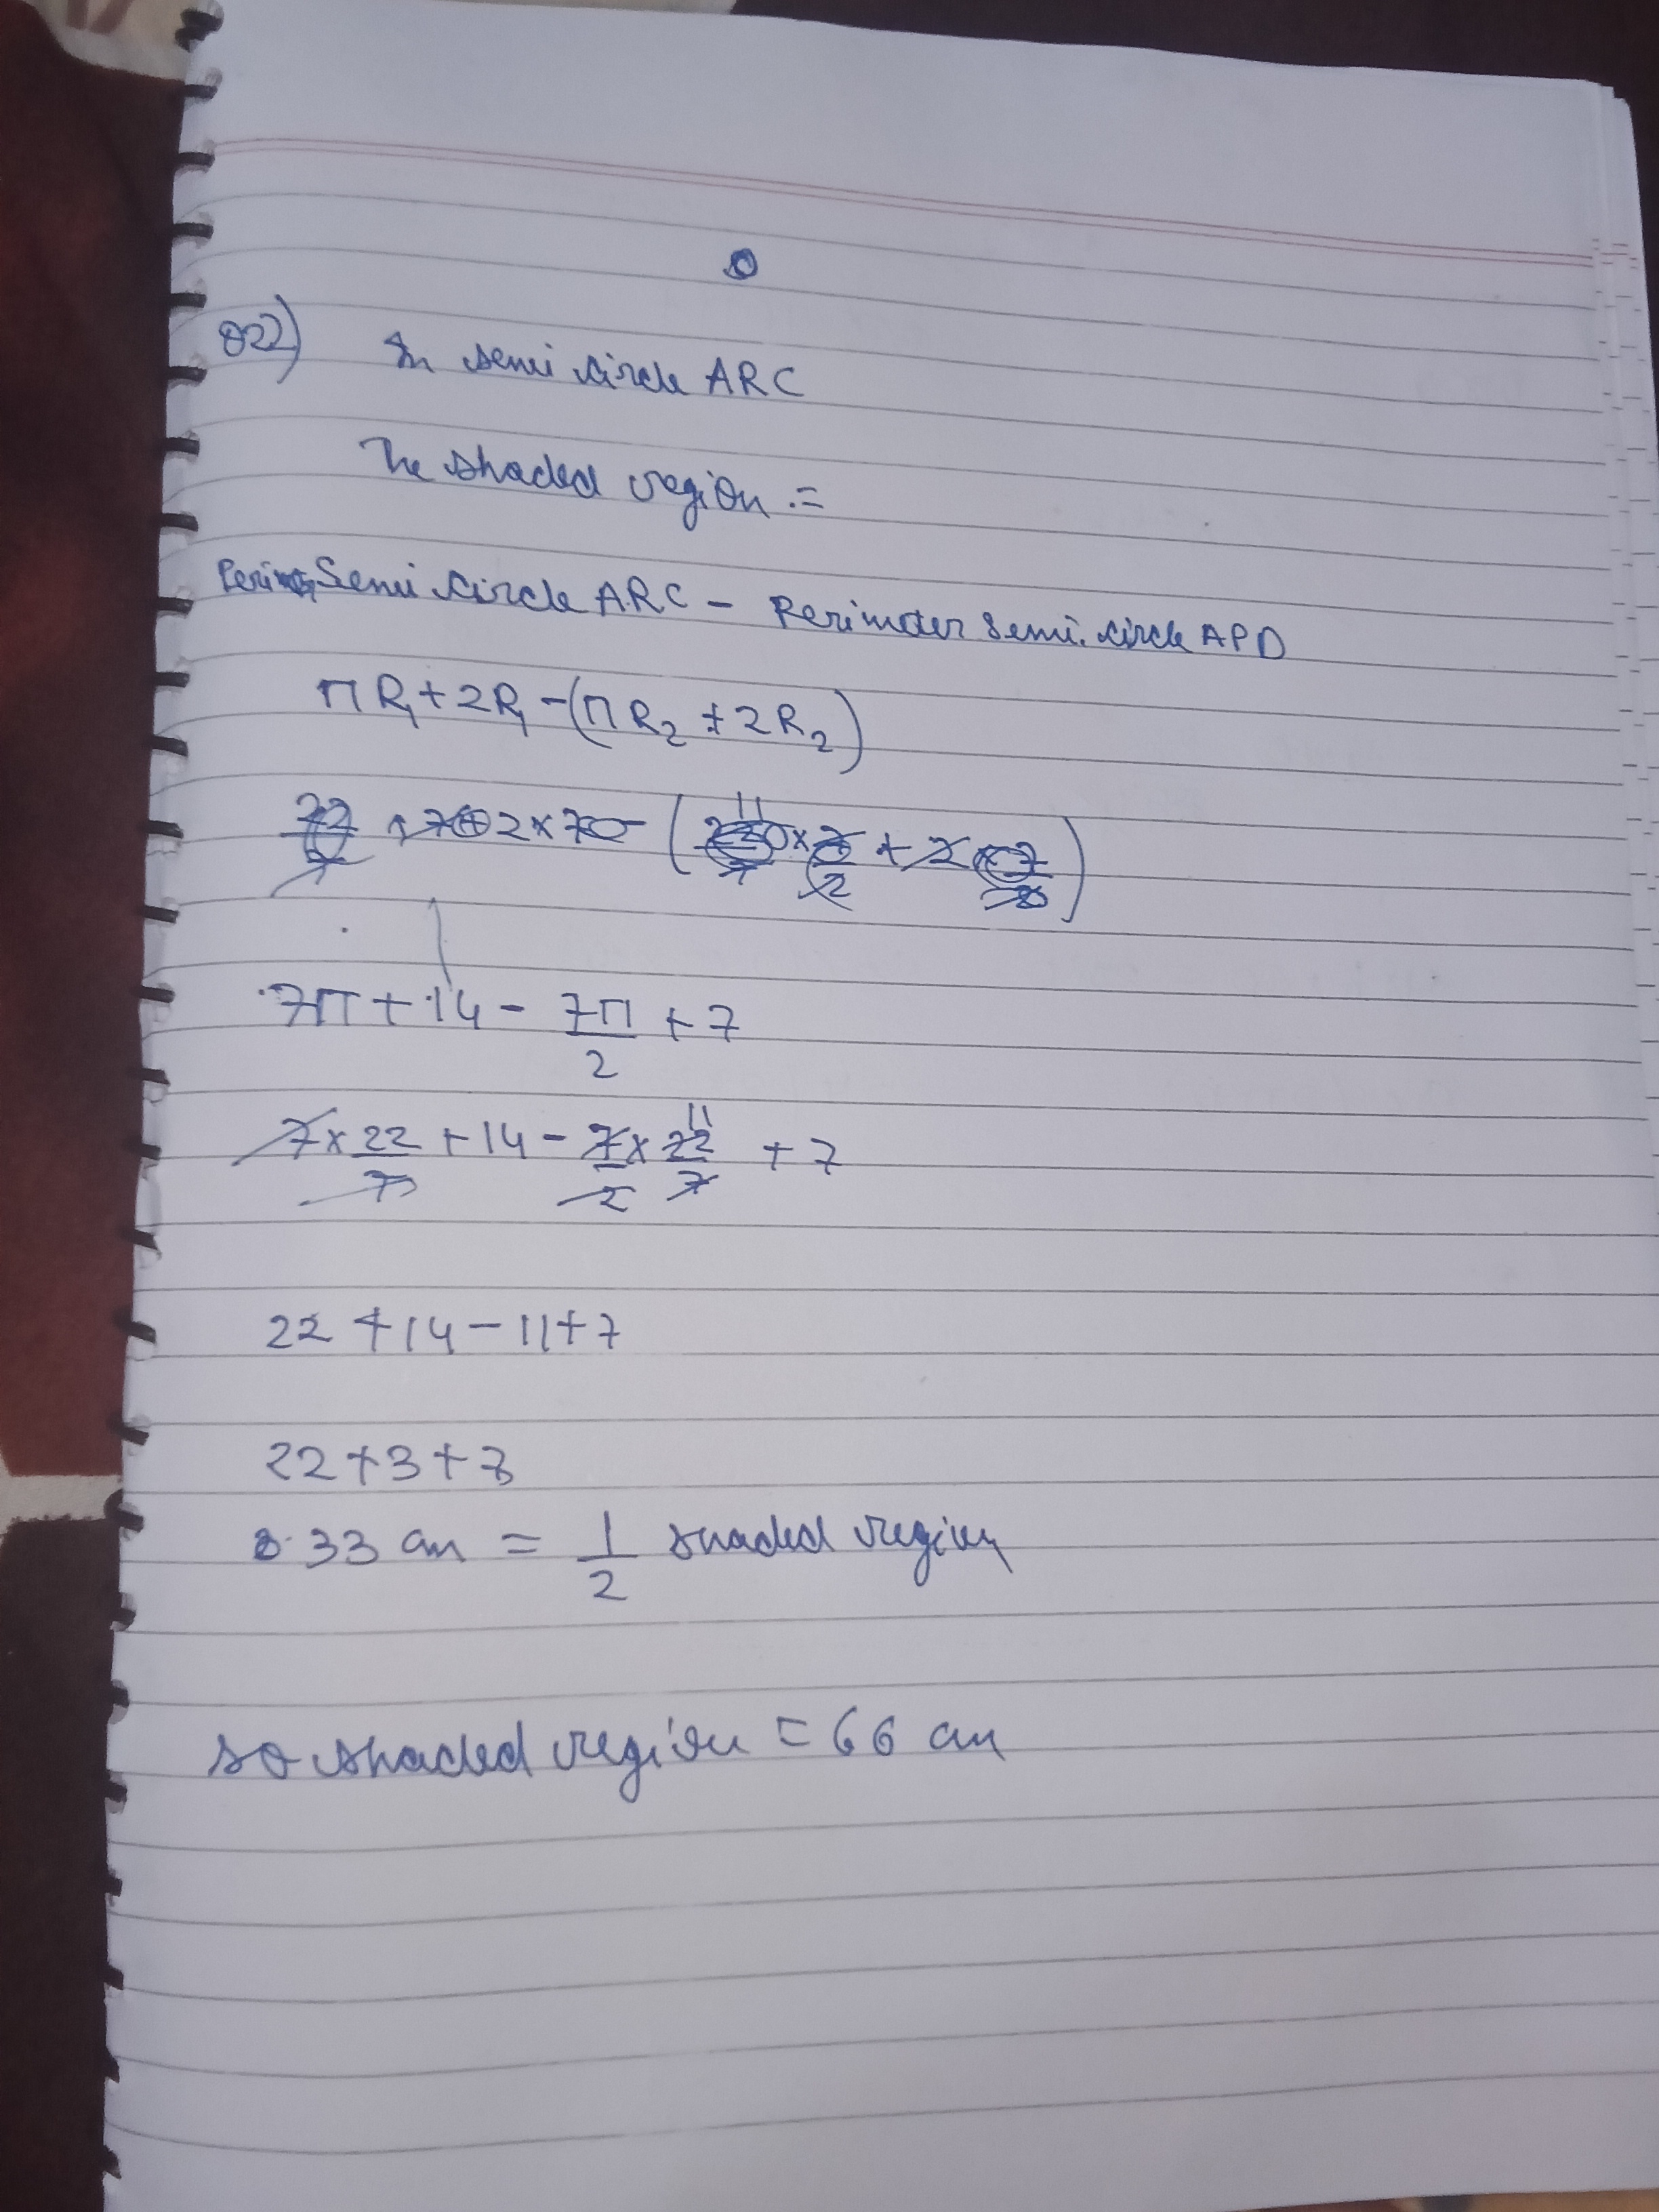 Q22) In semi circle ARC
The shaded region :=
Perimeter Semi circle ARC - Perimeter semi. circle APD
πR₁ + 2R₁ - (πR₂ + 2R₂)
7π + 14 - 7π/2 + 7
7 x 22/7 + 14 - 7/2 x 22/7 11 + 7
22 + 14 - 11 + 7
22 + 3 + 7
33 cm = 1/2 shaded region
so shaded region = 66 cm